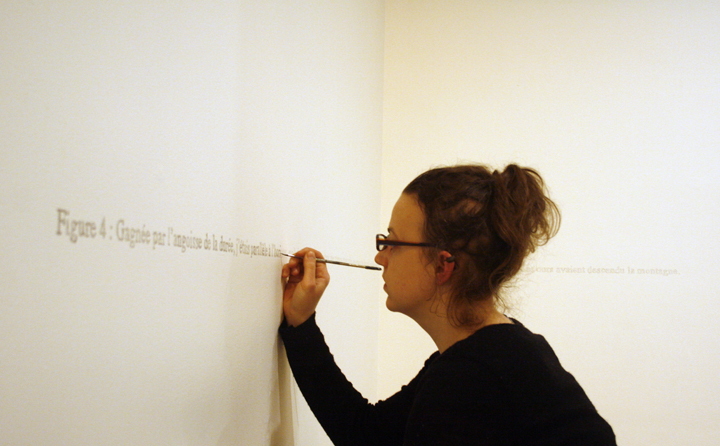 Figure 4 : Gagnée par l'angoisse de la durée, j'étais parallèle à
avaient descendu la montagne.